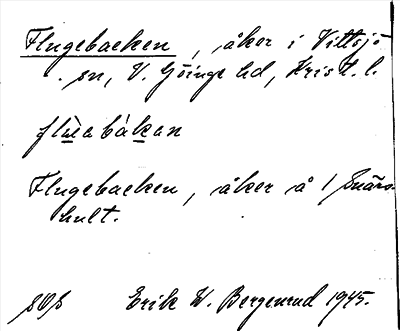 Flugebacken, åker i Vittsjö
sn, V. Göinge hd, Krist. l.
flu̲a bák̲an
Flugebacken, åker å 1/ Snärs-
hult.
Erik W. Bergenrud 1945.